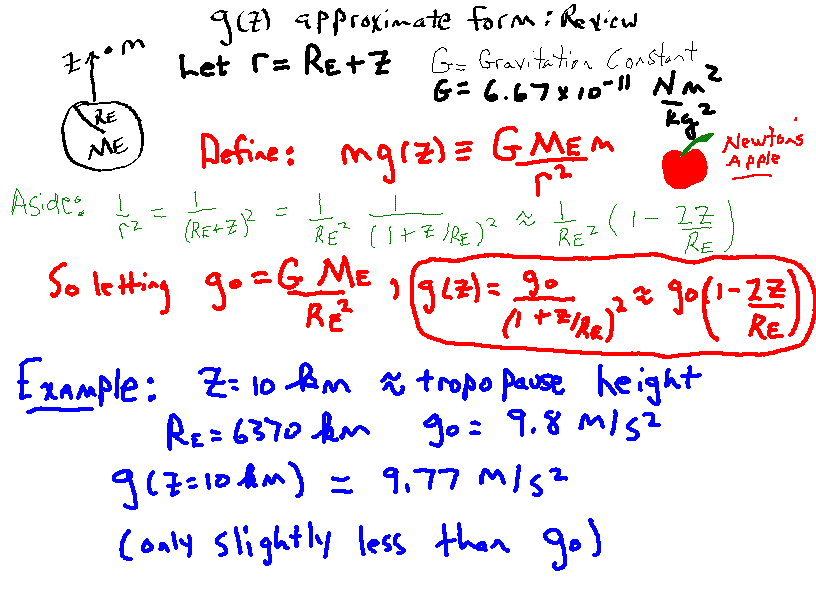 g(z) approximate form: Review
z • m
Let r = RE + z
G = Gravitation Constant
G = 6.67 x 10^-11 N m^2 / kg^2
RE
ME
Define: mg(z) ≡ G ME m / r^2
Newton's
Apple
Aside: 1/r^2 = 1/(RE+z)^2 = 1/RE^2 1/(1+z/RE)^2 ≈ 1/RE^2 (1 - 2z/RE)
So letting g0 = G ME / RE^2 , g(z) = g0/(1+z/RE)^2 ≈ g0(1 - 2z/RE)
Example: z = 10 km ≈ tropopause height
RE = 6370 km g0 = 9.8 m/s^2
g(z=10 km) = 9.77 m/s^2
(only slightly less than g0)